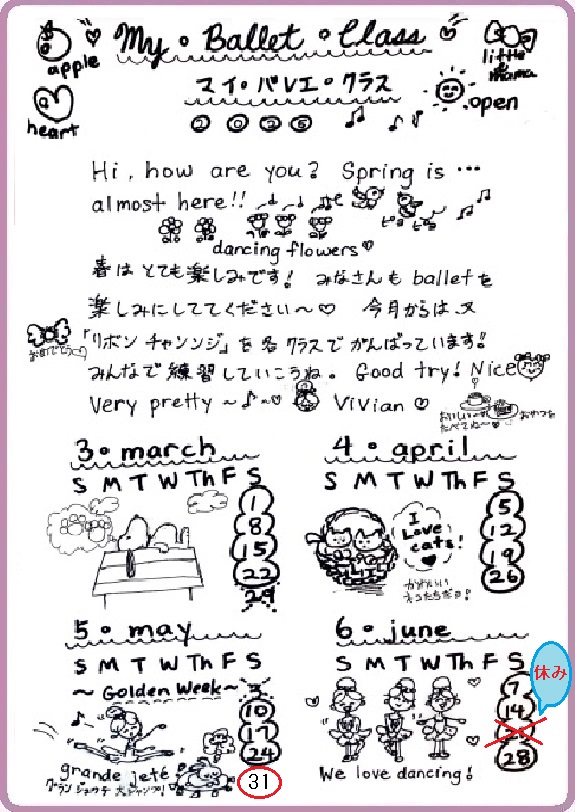 My・Ballet・Class
apple
heart
little mama
open
マイ・バレエ・クラス
2025
Hi, how are you? Spring is …
almost here!!
ピヨピヨ
dancing flowers♡
春はとても楽しみです! みなさんもballetを
楽しみにしててください〜♡ 今月からは、又
「リボンチャンンジ」を各クラスでがんばっています!
おめでとう♡
みんなで練習していこうね。Good try! Nice
Very pretty 〜♪〜♡ Vivian ♡
おいしい〜 おやつをたべてね〜♡
3・march
S M T W Th F S
1
8
15
22
29
4・april
S M T W Th F S
I Love cats!
5
12
19
26
かわいいネコたちだヨ!
5・may
S M T W Th F S
〜Golden Week〜 3
10
17
24
31
grande jeté
グラン ジュッテ 大ジャンプ!
6・june
S M T W Th F S
休み
7
14
28
We love dancing!